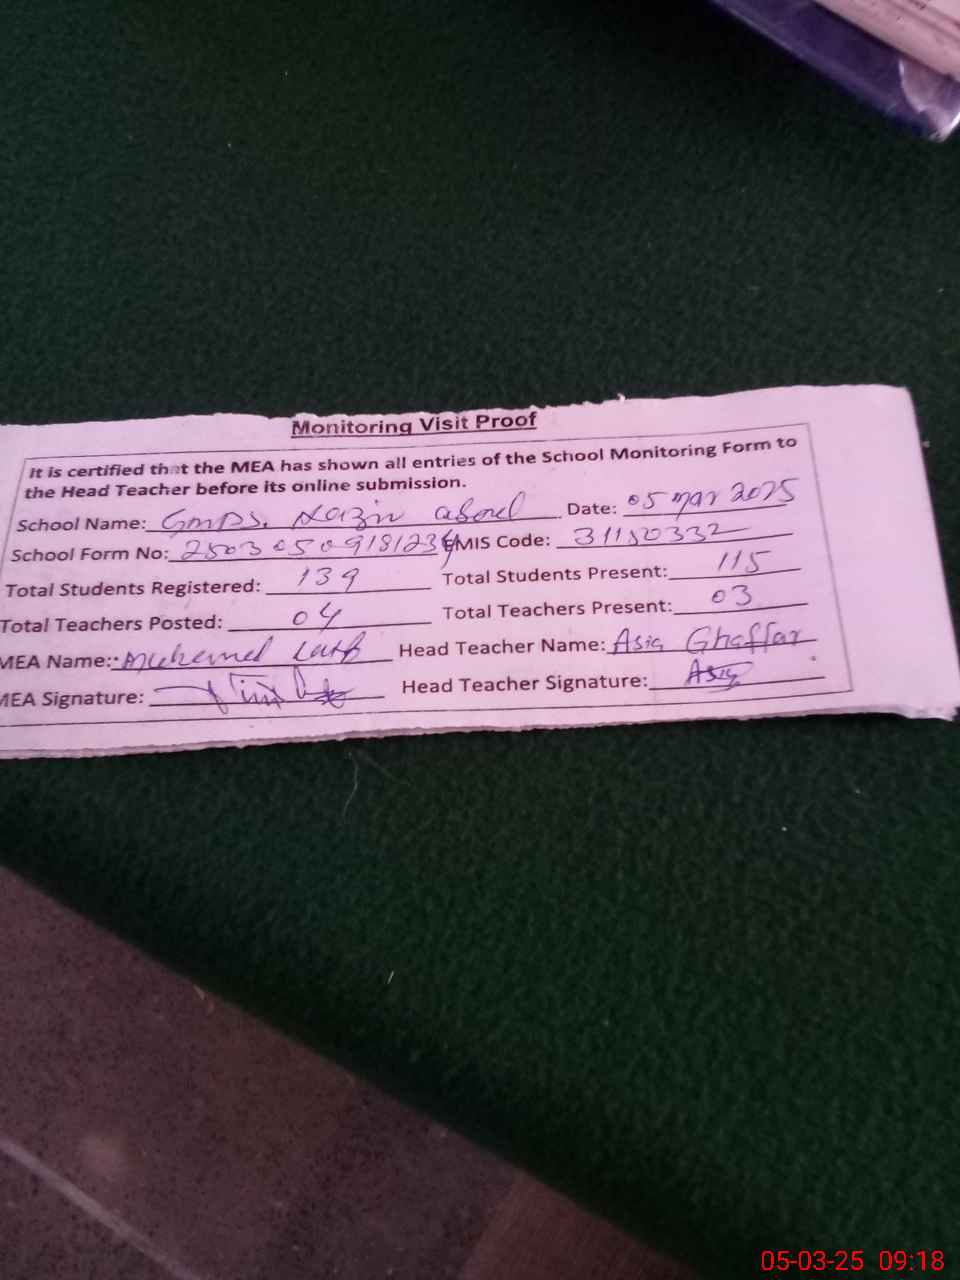 Monitoring Visit Proof
It is certified that the MEA has shown all entries of the School Monitoring Form to
the Head Teacher before its online submission.
School Name: GMPS. Nazir abad Date: 05 Mar 2025
School Form No: 25030509181234 EMIS Code: 31180332
Total Students Registered: 139 Total Students Present: 115
Total Teachers Posted: 04 Total Teachers Present: 03
MEA Name: Muhemed Head Teacher Name: Asia Ghaffar
MEA Signature: Head Teacher Signature: Asia
05-03-25 09:18